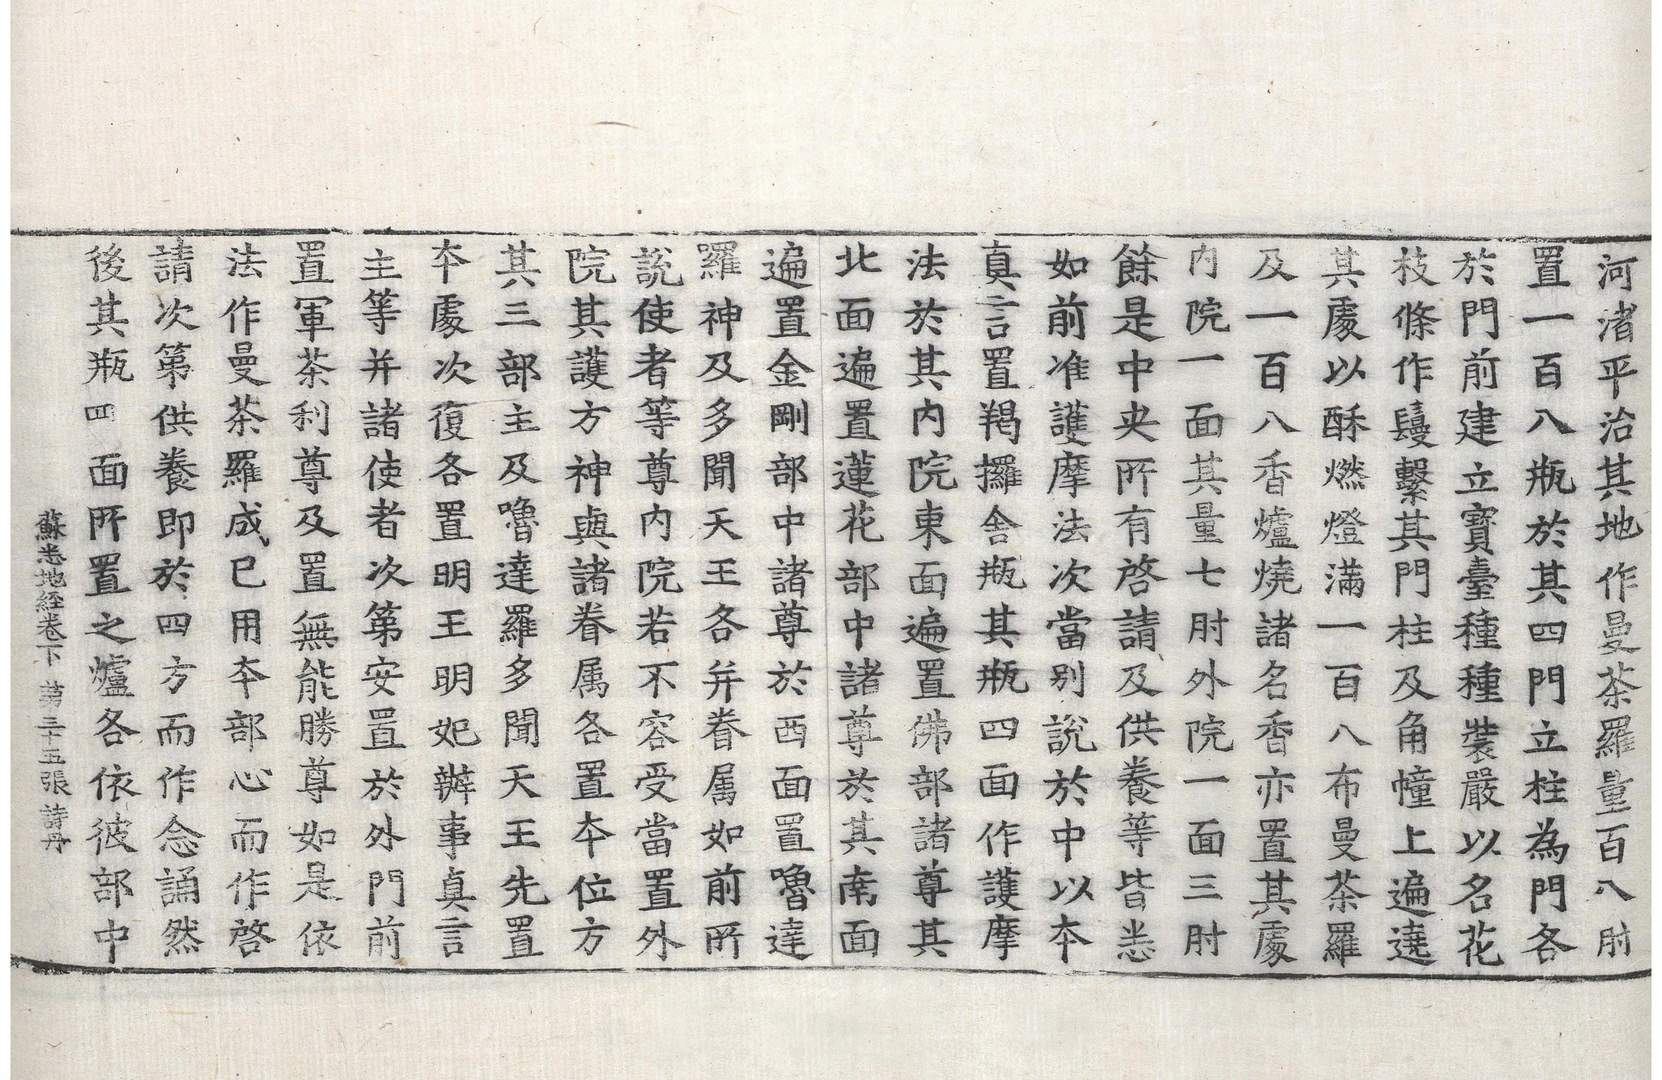 河渚平治其地作曼茶羅量百八肘
置一百八瓶於其四門立柱為門各
於門前建立寶臺種種裝嚴以名花
枝條作鬘繫其門柱及角幢上遍遶
其處以酥燃燈滿一百八布曼茶羅
及一百八香爐燒諸名香亦置其處
内院一面其量七肘外院一面三肘
餘是中央所有啓請及供養等皆悉
如前准護摩法次當別說於中以本
真言置羯攞舍瓶其瓶四面作護摩
法於其内院東面遍置佛部諸尊其
北面遍置蓮花部中諸尊於其南面
遍置金剛部中諸尊於西面置嚕達
羅神及多聞天王各并眷属如前所
說使者等尊内院若不容受當置外
院其護方神與諸眷属各置本位方
其三部主及嚕達羅多聞天王先置
本處次復各置明王明妃辦事真言
主等并諸使者次第安置於外門前
置軍茶利尊及置無能勝尊如是依
法作曼茶羅成已用本部心而作啓
請次第供養即於四方而作念誦然
後其瓶四面所置之爐各依彼部中
蘇悉地経卷下 第三十五張 詩丹